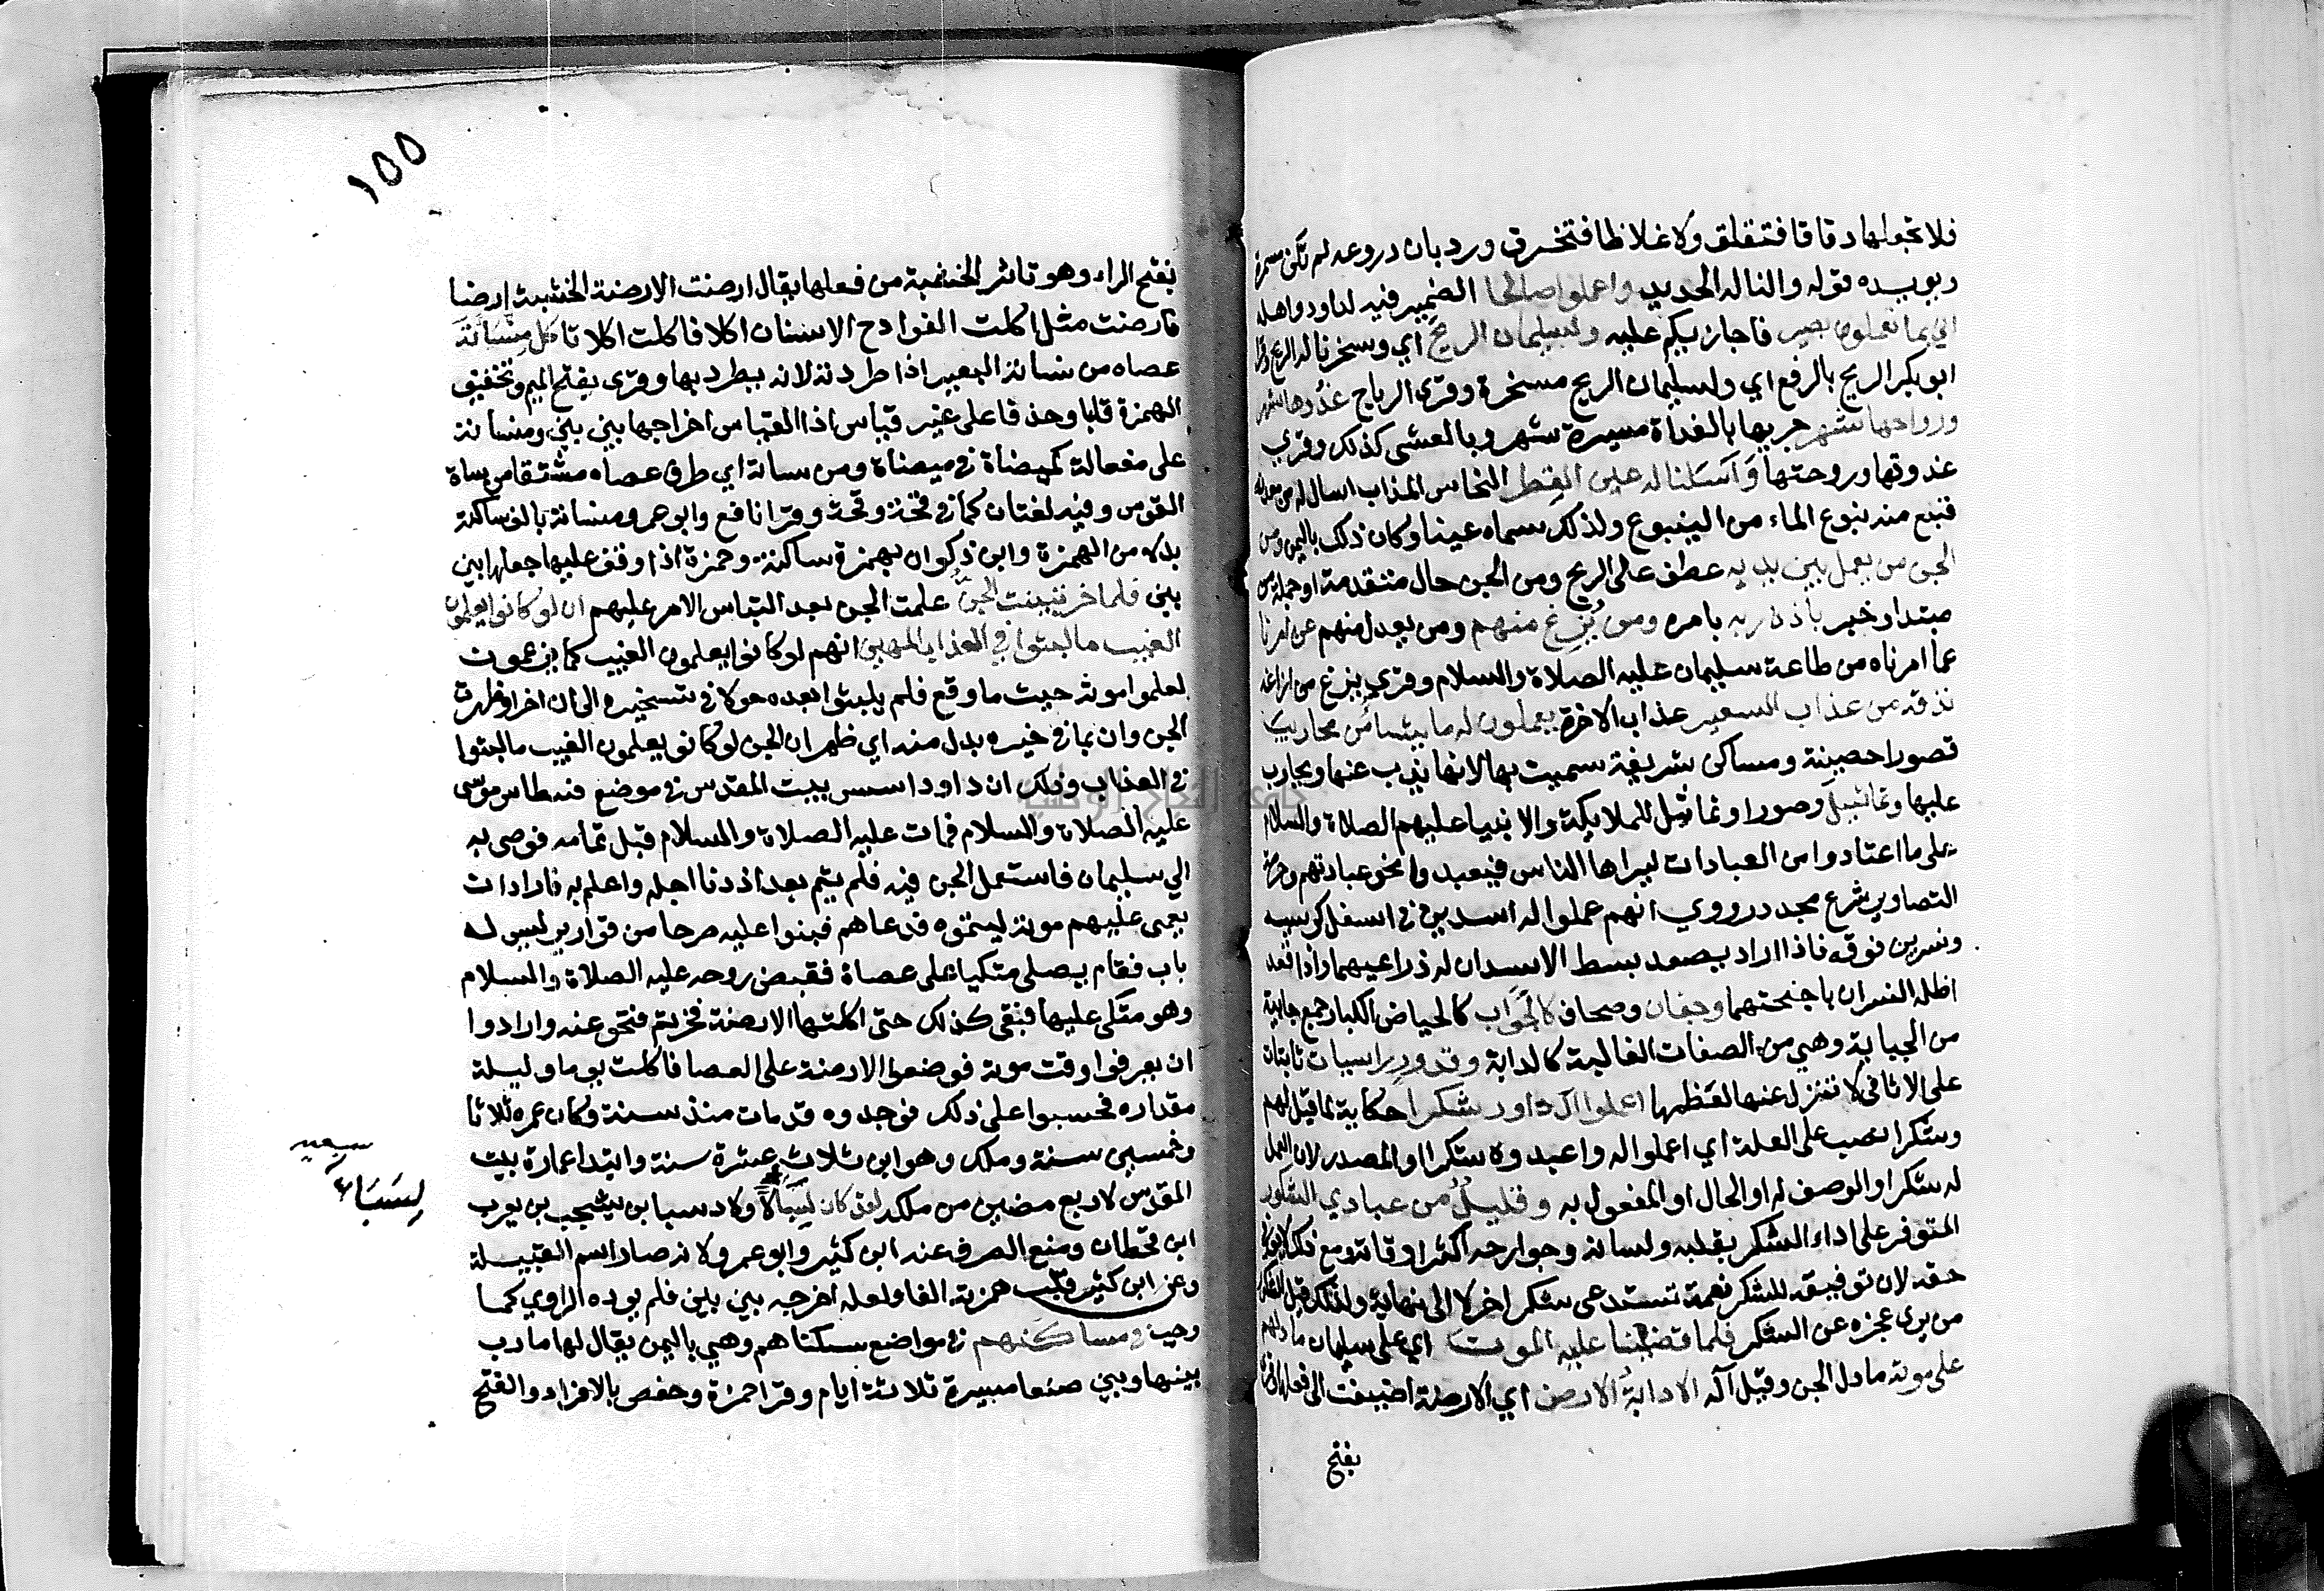 فلا تجعلها دقاقا فتقلق ولا غلاظا فتخرق ورد بان دروعه لم تكن مسمرة
ويويده قوله والنا له الحديد واعملوا صالحا الضمير فيه لداود واهله
اني بما تعملون بصير فاجازيكم عليه ولسليمان الريح اي وسخرنا له الريح وقرا
ابو بكر الريح بالرفع اي ولسليمان الريح مسخرة وقرى الرياح غدوها شهر
ورواحها شهر جريها بالغداة مسيرة شهر وبالعشى كذلك وقرى
غدوتها وروحتها وَاَسَلنا له عين القِطر النحاس المذاب اسال له من معدنه
فنبع منه نبوع الماء من الينبوع ولذلك سماه عينا وكان ذلك باليمن ومن
الجن من يعمل بين يديه عطف على الريح ومن الجن حال متقدمة او جملة من
مبتدا وخبر بأذن ربه بامره ومن يُزغ منهم ومن يعدل منهم عن امرنا
عما امرناه من طاعة سليمان عليه الصلاة والسلام وقرى يُزغ من ازاغه
نذقه من عذاب السعير عذاب الاخرة يعملون له ما يشاُ من محاريب
قصورا حصينة ومساكن شريفة سميت بها لانها يذب عنها ويحارب
عليها وتماثيلَ وصورا وتماثيل للملايكة والانبيا عليهم الصلاة والسلام
على ما اعتادوا من العبادات ليراها الناس فيعبدوا نحو عبادتهم وحرمة
التصاوير شرع مجدد رووي انهم عملوا له اسدين في اسفل كرسيه
ونسرين فوقه فاذا اراد يصعد بسط الاسدان له ذراعيهما واذا قعد
اظله النسران باجنحتهما وجفان وصحاف كالجَوَاب كالحياض الكبار جمع جابية
من الجباية وهي من الصفات الغالبة كالدابة وقدورٍ راسيات ثابتات
على الاثافى لا تنزل عنها لعَظمها اعملوا ال داود شكرا حكاية بما قيل لهم
وشكرا نصب على العلة اي اعملوا له واعبدوه شكرا او المصدر لان العمل
له شكر او الوصف له او الحال او المفعول به وقليلٌ من عبادي الشكور
المتوفر على اداء الشكر بقلبه ولسانه وجوارحه اكثر اوقاته ومع ذلك لا يوفي
حقه لان توفيقه للشكر نعمة تستدعى شكرا اخر لا الى نهاية ولذلك قيل الشكور
من يرى عجزه عن الشكر فلما قضينا عليه الموت اي على سليمان ما دلهم
على موته ما دل الجن وقيل آله الا دابةُ الارض اي الارضة اضيفت الى فعلها وقرئ
بفتح
١٥٥
بفتح الراء وهو تاثر الخشبة من فعلها يقال ارضت الارضة الخشبة إرضا
فارضت مثل اكلت القوادح الاسنان اكلا فاكلت اكلا تاكل مِنْسَاَتَهَ
عصاه من نسات البعير اذا طردته لانه يطرد بها وقرى بفتح الميم وتخفيف
الهمزة قلبا وحذفا على غير قياس اذ القياس اخراجها بين بين ومنساته
على مفعالة كميضاة في ميضاة ومن ساته اي طرف عصاه مشتقا من ساة
القوس وفيه لغتان كما في قحة وقحة وقرا نافع وابو عمرو منساته بالف ساكنة
بدلا من الهمزة وابن ذكوان بهمزة ساكنة وحمزة اذا وقف عليها جعلها بين
بين فلما خر تبينت الجنُّ علمت الجن بعد التباس الامر عليهم ان لو كانوا يعلمون
الغيب ما لبثوا في العذاب المهين انهم لو كانوا يعلمون الغيب كما يزعمون
لعلموا موته حيث ما وقع فلم يلبثوا بعده حولا في تسخيره الى ان اخر او ظهرت
الجن وان بما في خيره بدل منه اي ظهر ان الجن لو كانو يعلمون الغيب ما لبثوا
في العذاب وذلك ان داود اسس بيت المقدس في موضع فسطاس موسى
عليه الصلاة والسلام فمات عليه الصلاة والسلام قبل تمامه فوصى به
الي سليمان فاستعمل الجن فيه فلم يتم بعد اذ دنا اجله واعلم به فاراد ان
يعمى عليهم موته ليتموه فدعاهم فبنوا عليه صرحا من قوارير ليس له
باب فقام يصلى متكيا على عصاة فقبض روحه عليه الصلاة والسلام
وهو متكى عليها فبقى كذلك حتى اكلتها الارضة فخر ثم فتحو عنه وارادوا
ان يعرفوا وقت موته فوضعوا الارضة على العصا فاكلت يوما وليلة
مقداره فحسبوا على ذلك فوجدوه قد مات منذ سنة وكان عمره ثلاثا
وخمسين سنة وملك وهو ابن ثلاث عشرة سنة وابتدا عمارة بيت
المقدس لاربع مضين من ملكه لقد كان لِسَبَاَ لاولاد سبا بن يشجب بن يعرب
ابن قحطان ومنع الصرف عنه ابن كثير وابو عمرو لانه صار اسم القبيلة
وعن ابن كثير قلب همزته الفا ولعله اخرجه بين بين فلم يوده الراوي كما
وجب في مساكَنهم في مواضع سكناهم وهي باليمن يقال لها مارب
بينها وبين صنعا مسيرة ثلاثة ايام وقرا حمزة وحفص بالافراد والفتح
لِسَبَاءٍ
جامعة النجاح الوطنية